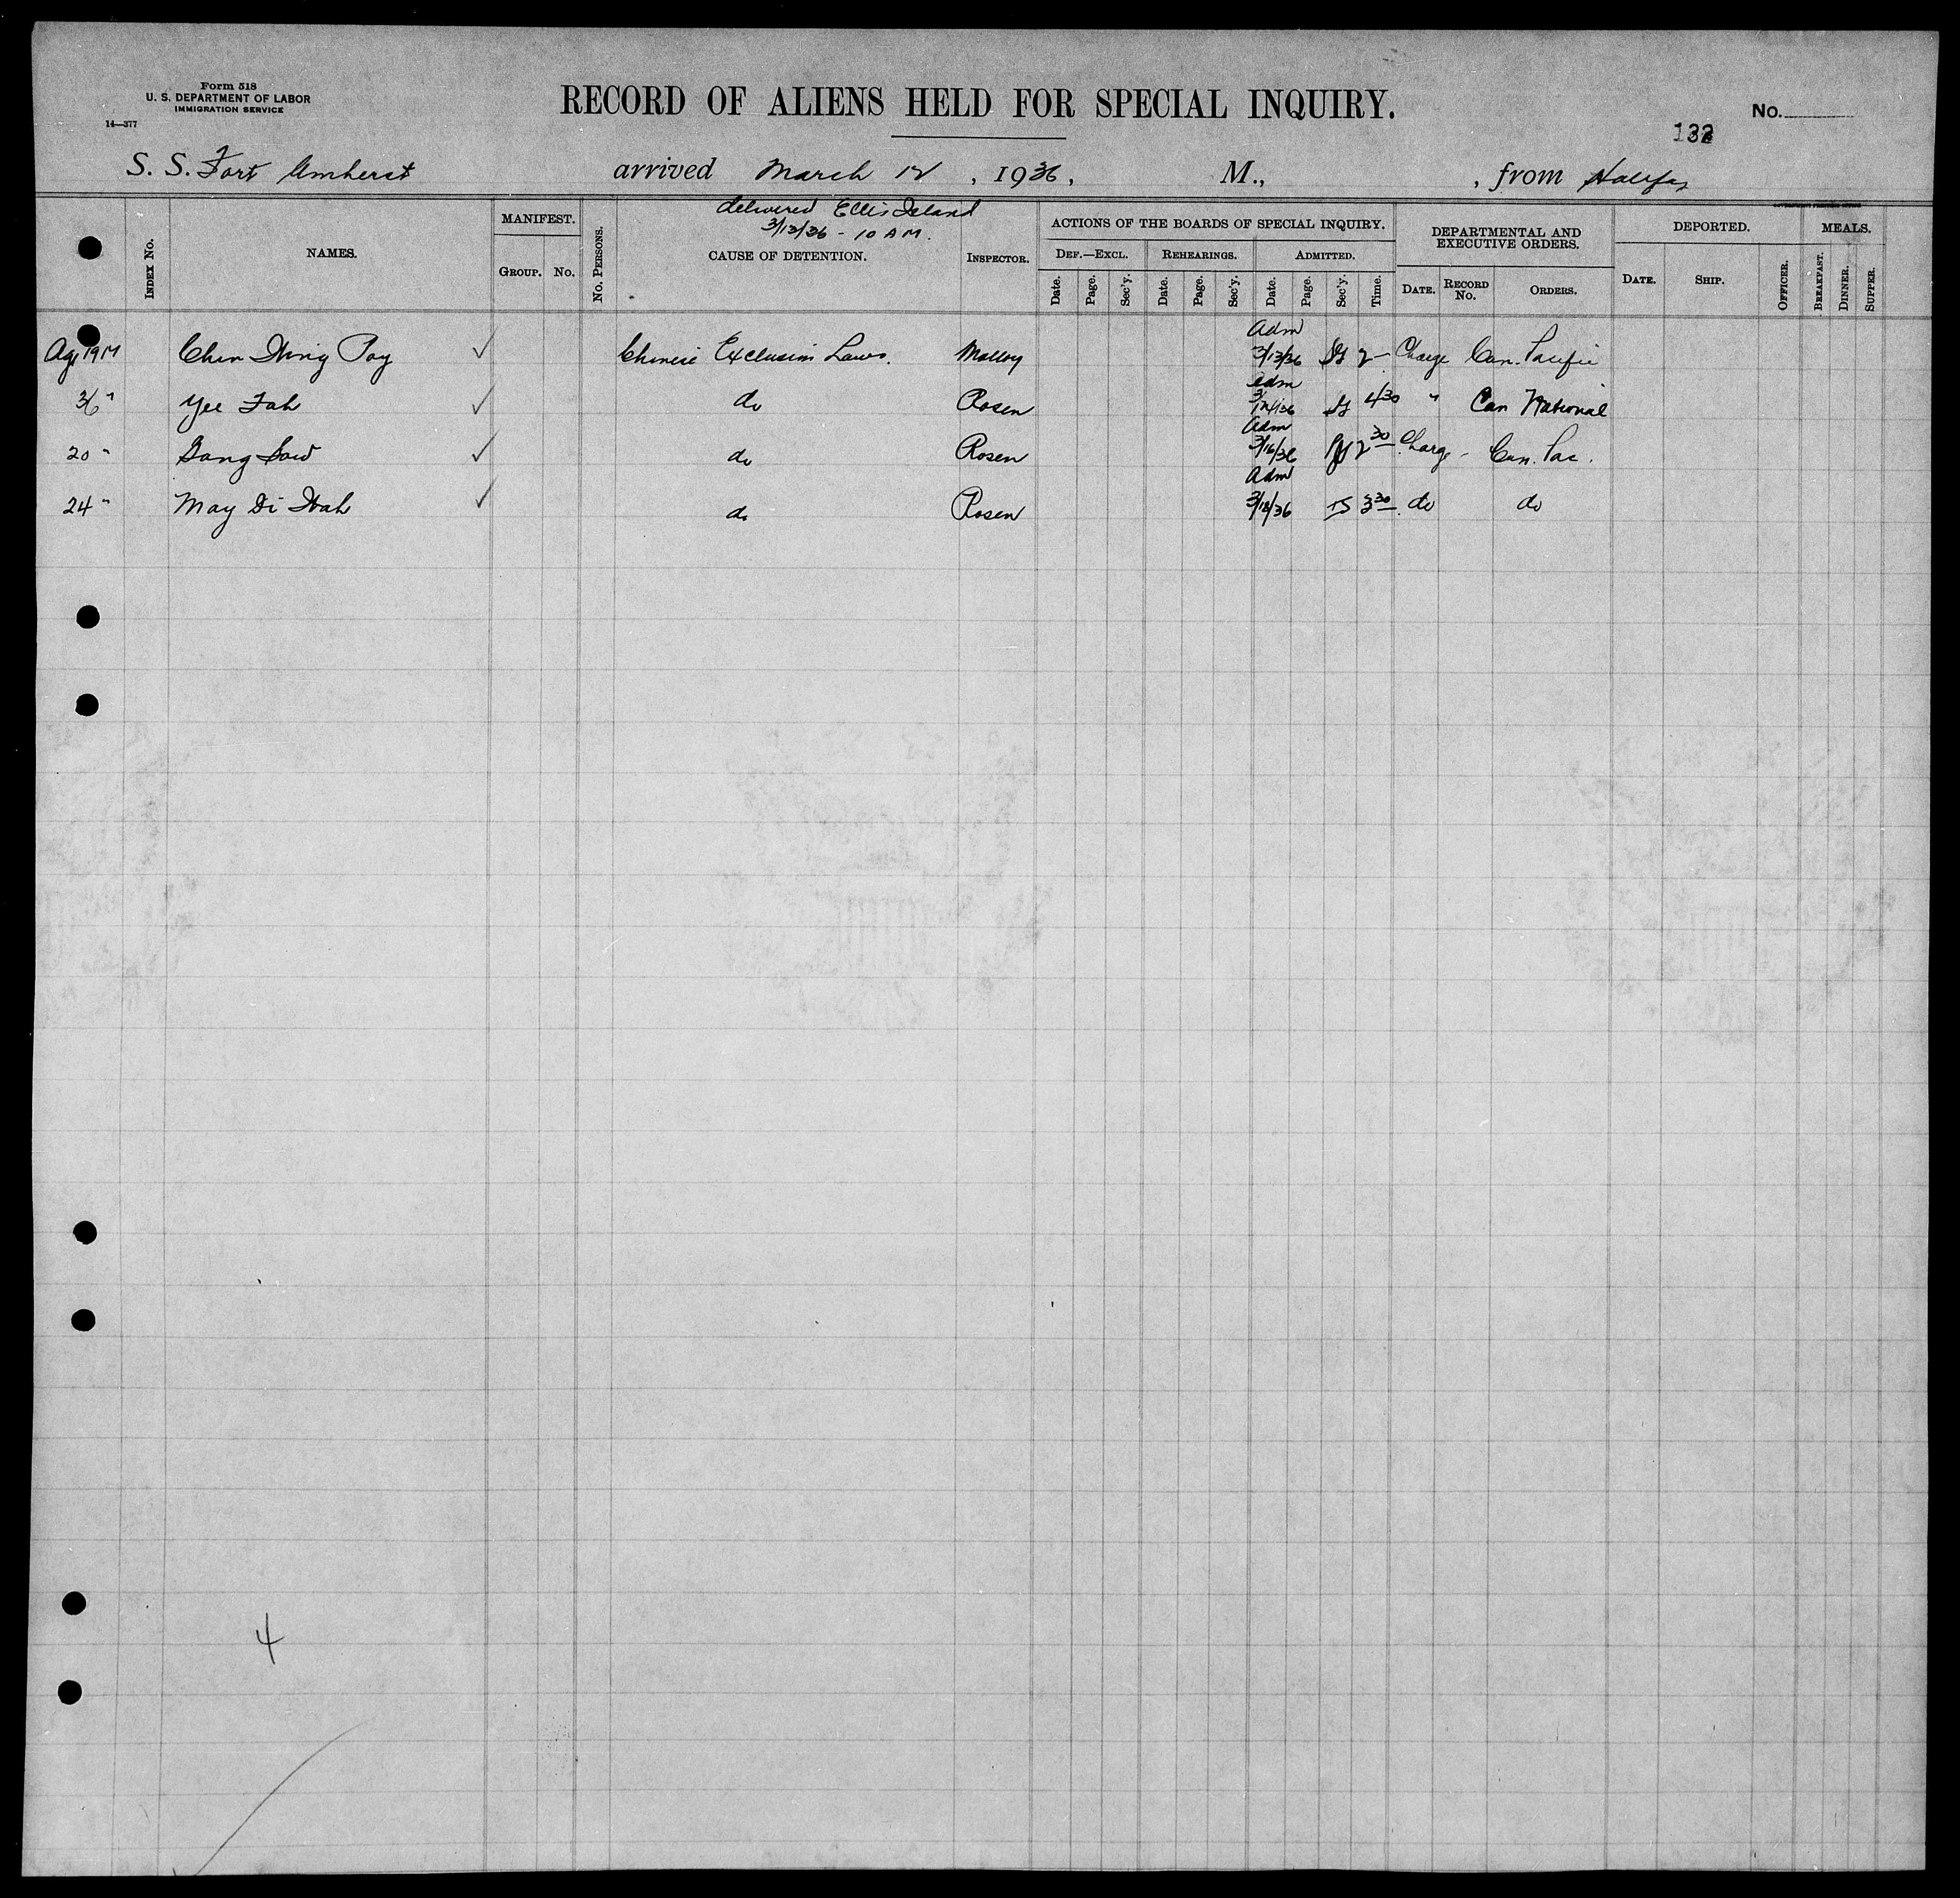 Form 518
U. S. DEPARTMENT OF LABOR
IMMIGRATION SERVICE
14—377
RECORD OF ALIENS HELD FOR SPECIAL INQUIRY.
No.
132
S. S. Fort Amherst arrived March 12, 1936, M., , from Halifax
delivered Ellis Island
3/13/36 - 10 AM.
INDEX NO. NAMES. MANIFEST. GROUP. NO. NO. PERSONS. CAUSE OF DETENTION. INSPECTOR. ACTIONS OF THE BOARDS OF SPECIAL INQUIRY. DEF.—EXCL. Date. Page. Sec'y. REHEARINGS. Date. Page. Sec'y. ADMITTED. Date. Page. Sec'y. Time. DEPARTMENTAL AND EXECUTIVE ORDERS. DATE. RECORD NO. ORDERS. DEPORTED. DATE. SHIP. OFFICER. MEALS. BREAKFAST. DINNER. SUPPER.
Age 19 M Chin Wing Poy ✓ Chinese Exclusion Laws. Malloy Adm 3/13/36 2— Charge Can. Pacific
36 " Yee Fah ✓ do Rosen Adm 3/14/36 4 30 " Can National
20 " ✓ do Rosen Adm 3/16/36 2 30 Charge - Can. Pac.
24 " May ✓ do Rosen Adm 3/18/36 TS 3 30 do do
4